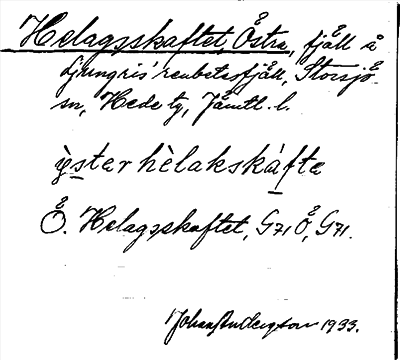 Helagsskaftet, Östra, fjäll å
Ljungris' renbetesfjäll, Storsjö
sn, Hede tg, Jämtl. l.
ỳster hèlakskàfte
Ö. Helagsskaftet, G71 Ö, G71.
Johan Andersson 1933.